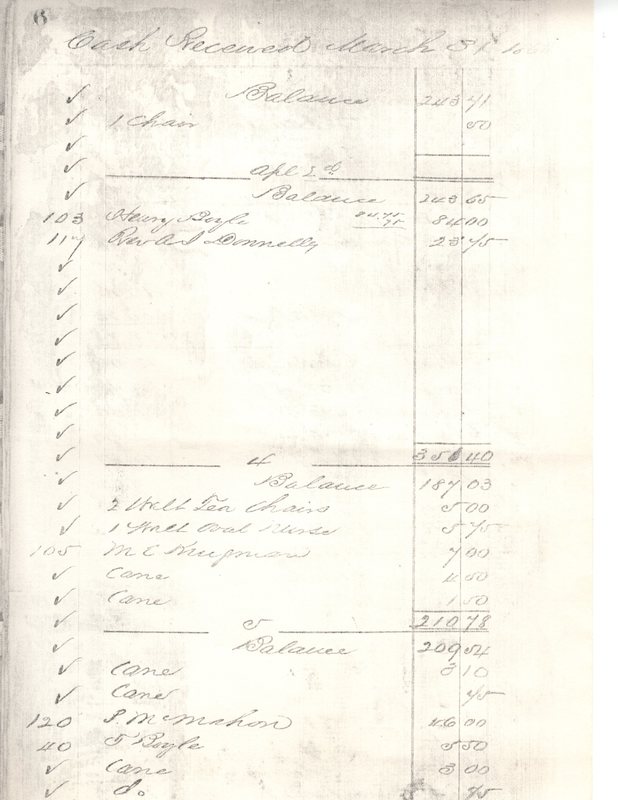 6
Cash Received March 31
✓ Balance 243 41
✓ 1 Chair 50
✓
✓ Apl 2d
✓ Balance 243 65
103 Henry Boyle 84 00
117 Rev A J Donnelly 23 75
✓
✓
✓
✓
✓
✓
✓
✓ 351 40
✓ 4
✓ Balance 187 03
✓ 2 Walt Tea Chairs 5 00
✓ 1 Walt Oval Nurse 5 75
105 M C Krugman 7 00
✓ Cane 4 50
✓ Cane 1 50
✓ 5 210 78
✓ Balance 209 54
✓ Cane 3 10
✓ Cane 75
120 P. McMahon 46 00
40 T Boyle 5 50
✓ Cane 3 00
✓ do 75